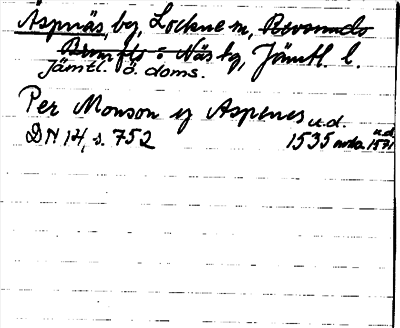 Äspnäs, by, Lockne sn, Revsunds
Brunflo o Näs tg, Jämtl. l.
Jämtl. ö. doms.
Per Monson y Aspenes u.d.
DN 14, s. 752 1535 u.d. 1531